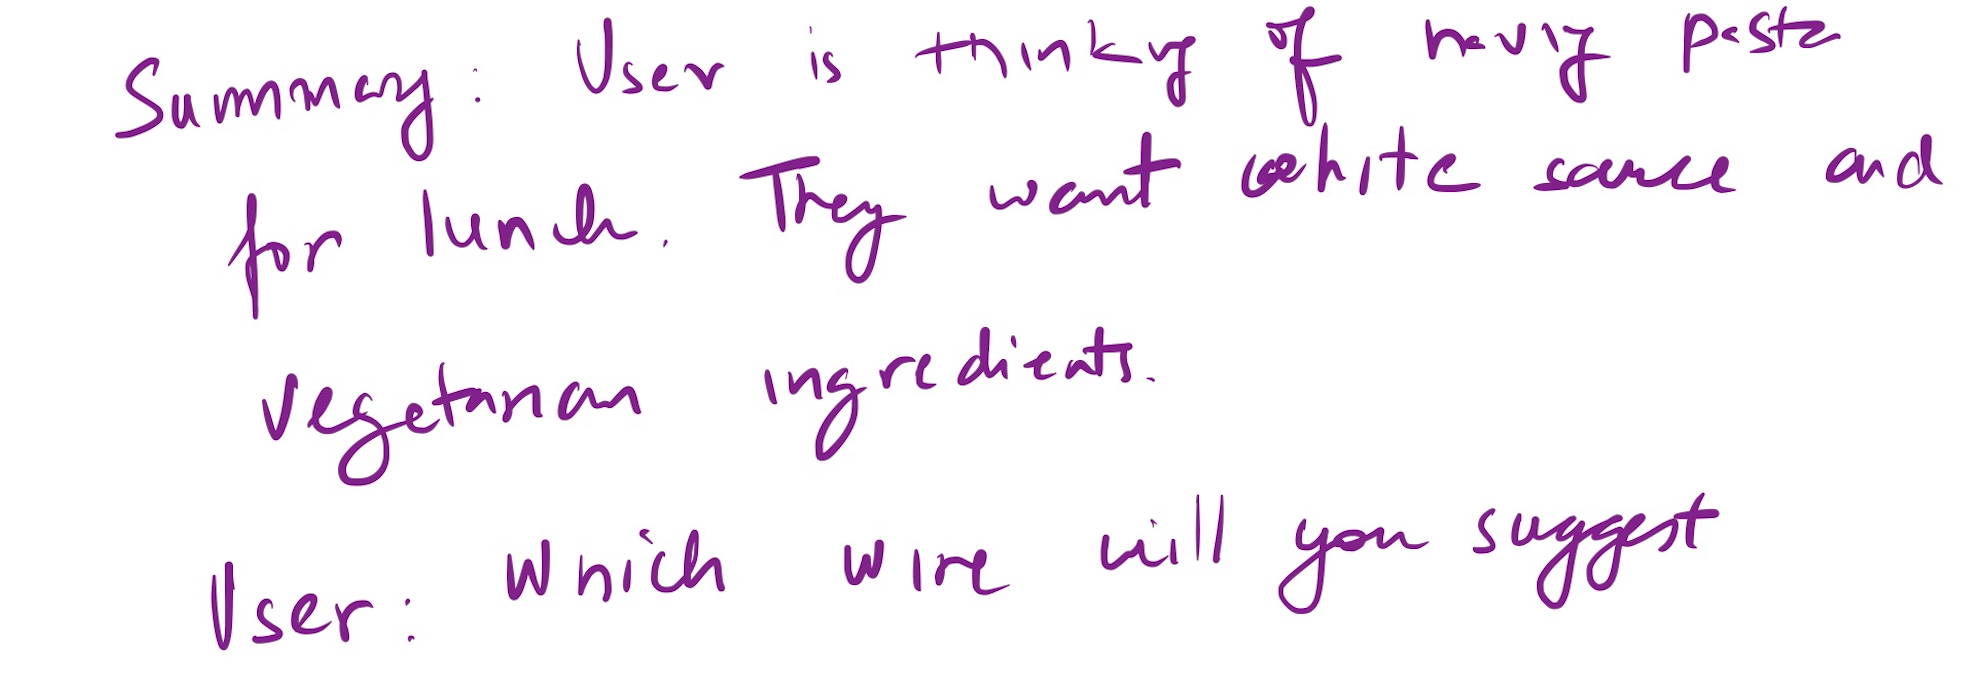 Summary: User is thinking of having pasta
for lunch. They want white sauce and
vegetarian ingredients.
User: Which wine will you suggest